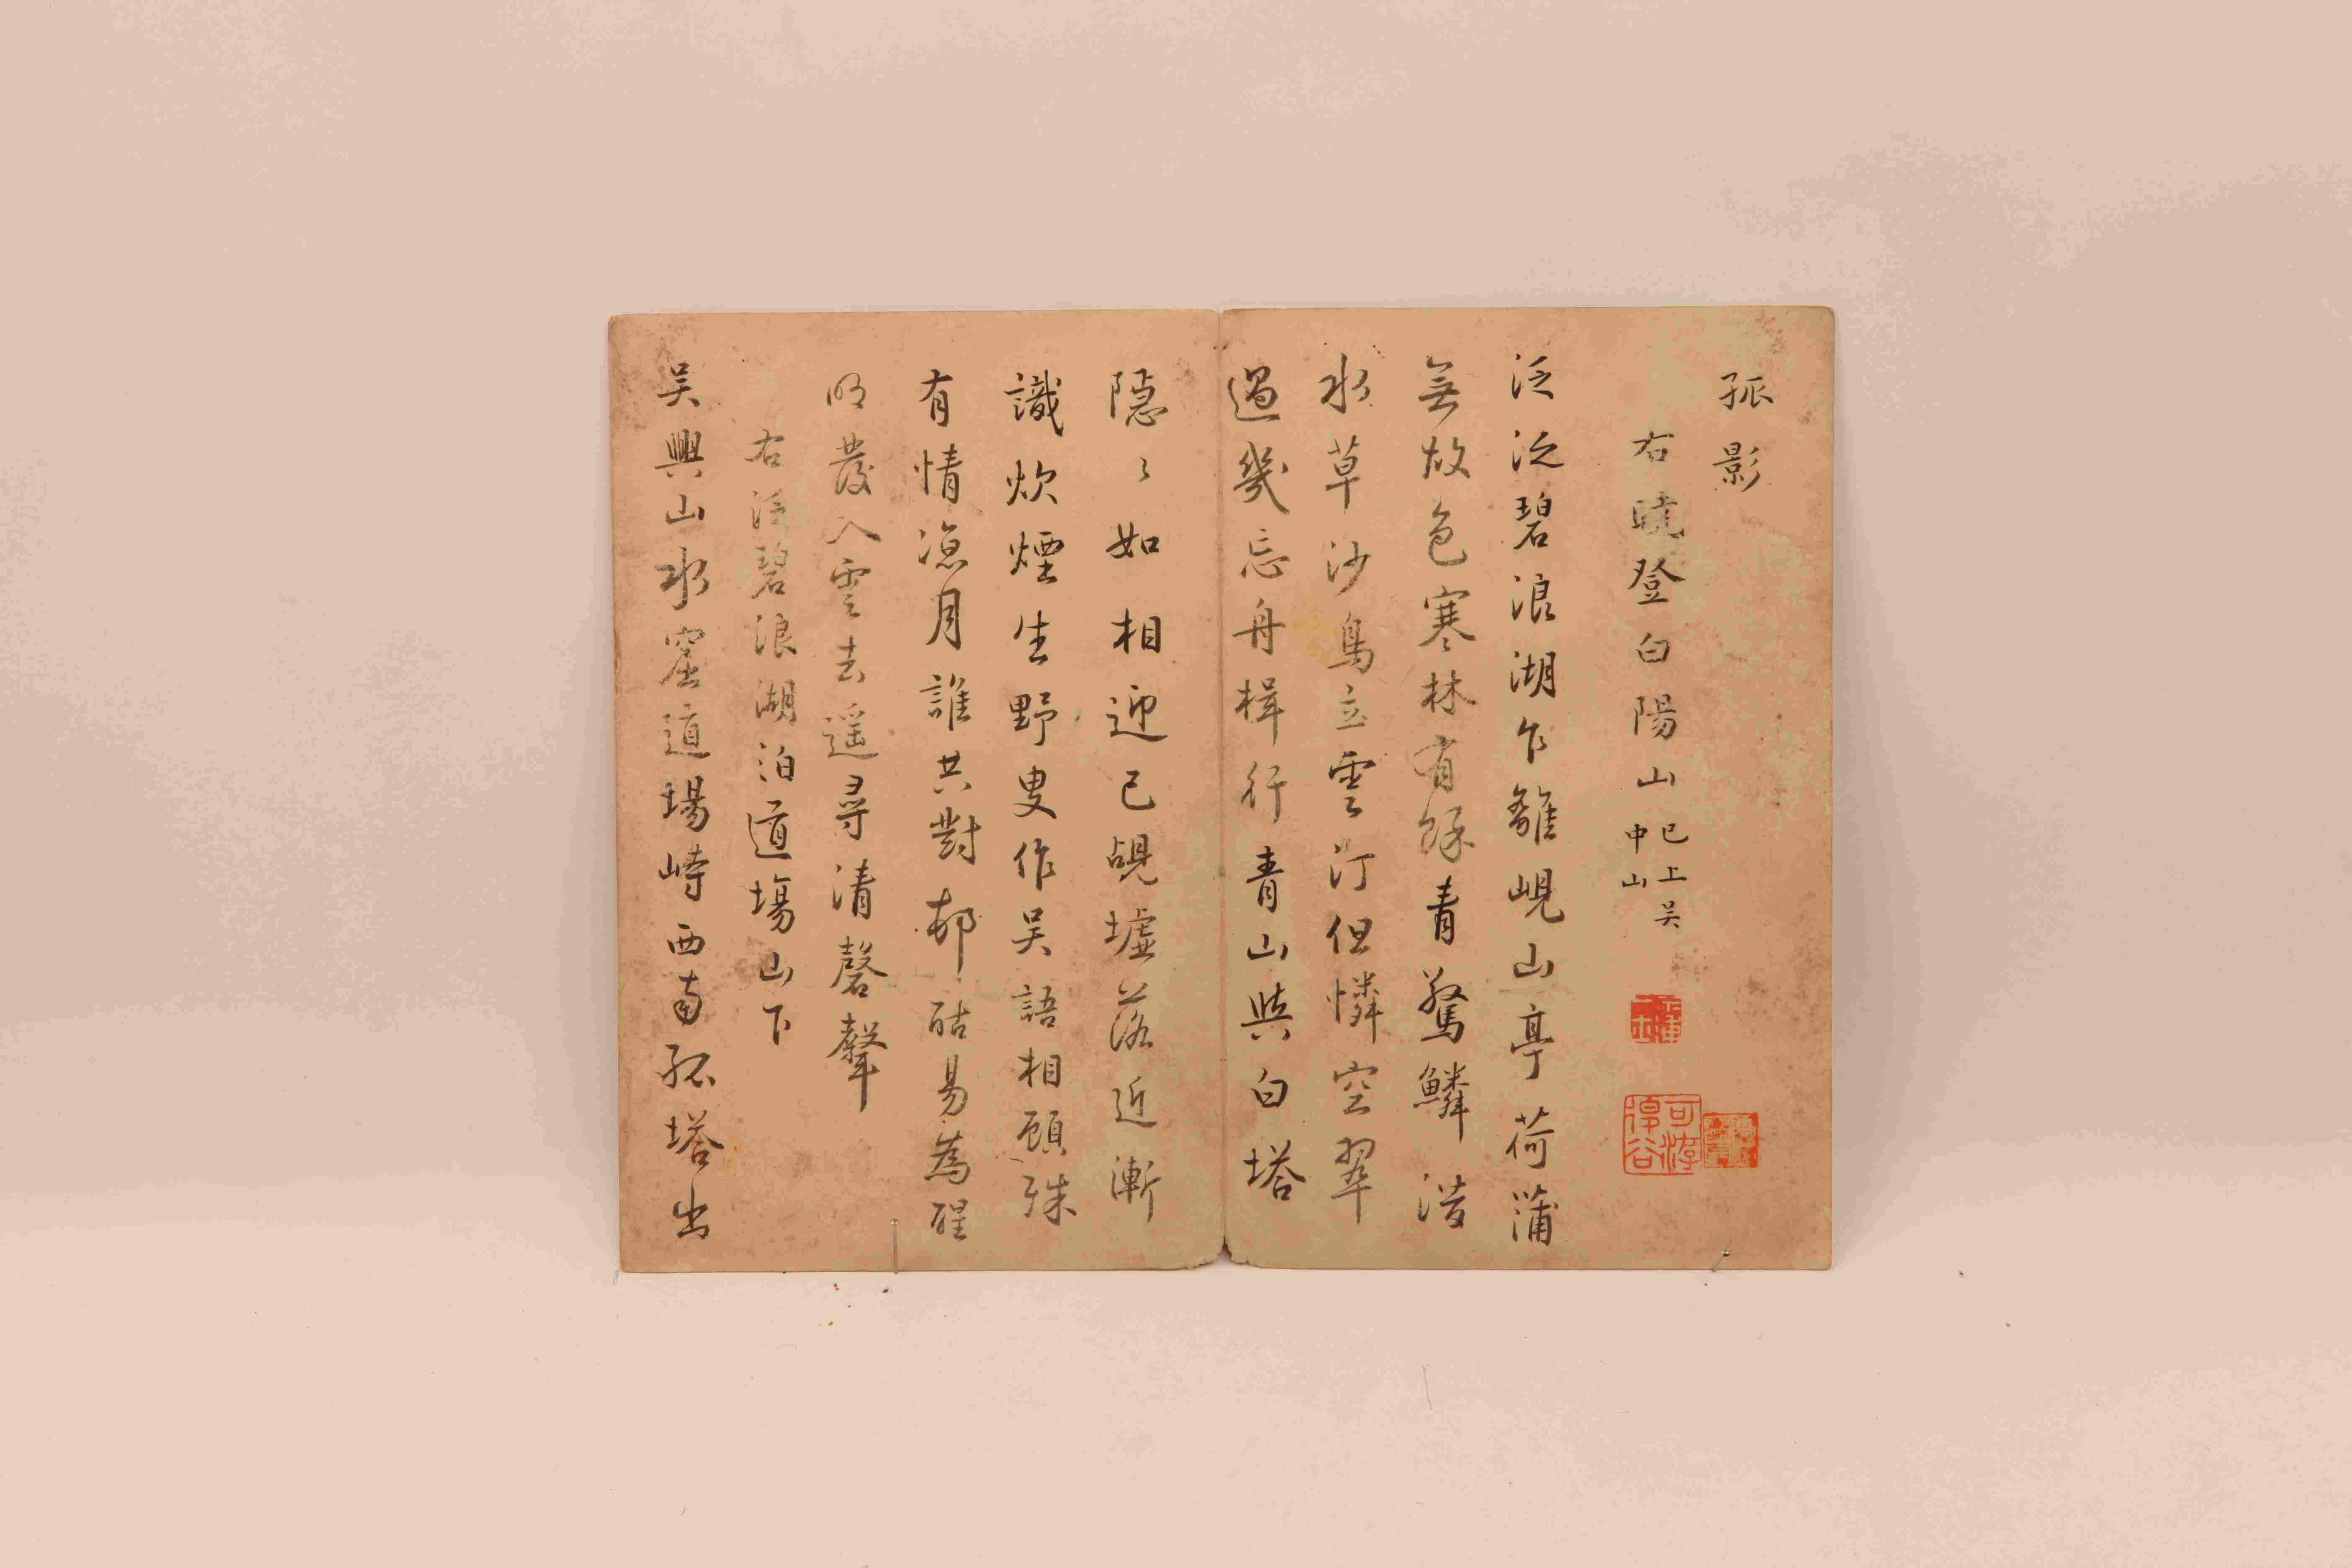 孤影
右曉登白陽山 已上吴中山
泛泛碧浪湖乍離峴山亭荷蒲
無故色寒林有餘青驚鱗潛
水草沙鳥立雲汀但憐空翠
過幾忘舟楫行青山與白塔
隱〻如相迎已覘墟落近漸
識炊煙生野叟作吴語相顧殊
有情凉月誰共對邨酤易爲醒
明發入雲去遥尋清磬聲
右泛碧浪湖泊道場山下
吴興山水窟道場峙西南孤塔出
可游
得谷